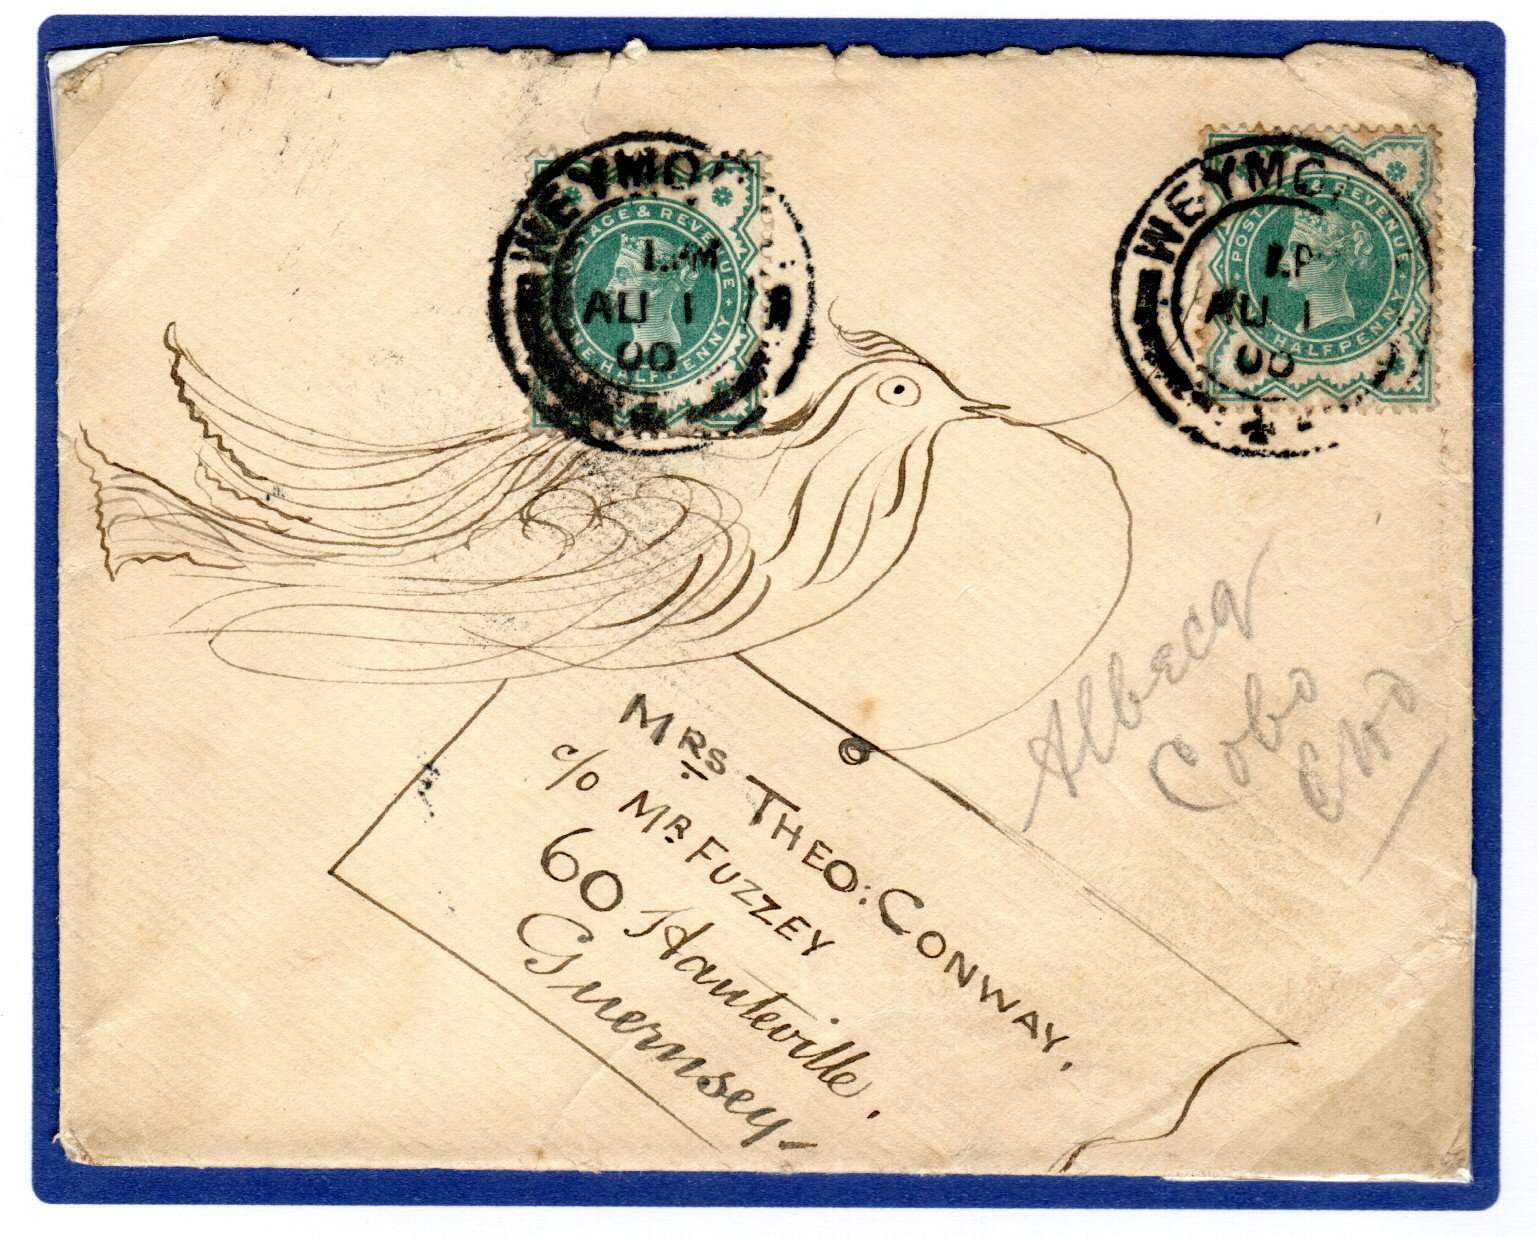 WEYMO
1.PM
AU 1
00
POSTAGE & REVENUE
ONE HALFPENNY
WEYMO
1.P
AU 1
00
POSTAGE & REVENUE
HALFPENNY
MRS THEO: CONWAY.
c/o MR FUZZEY
60 Hauteville.
Guernsey
Albecq
Cobo